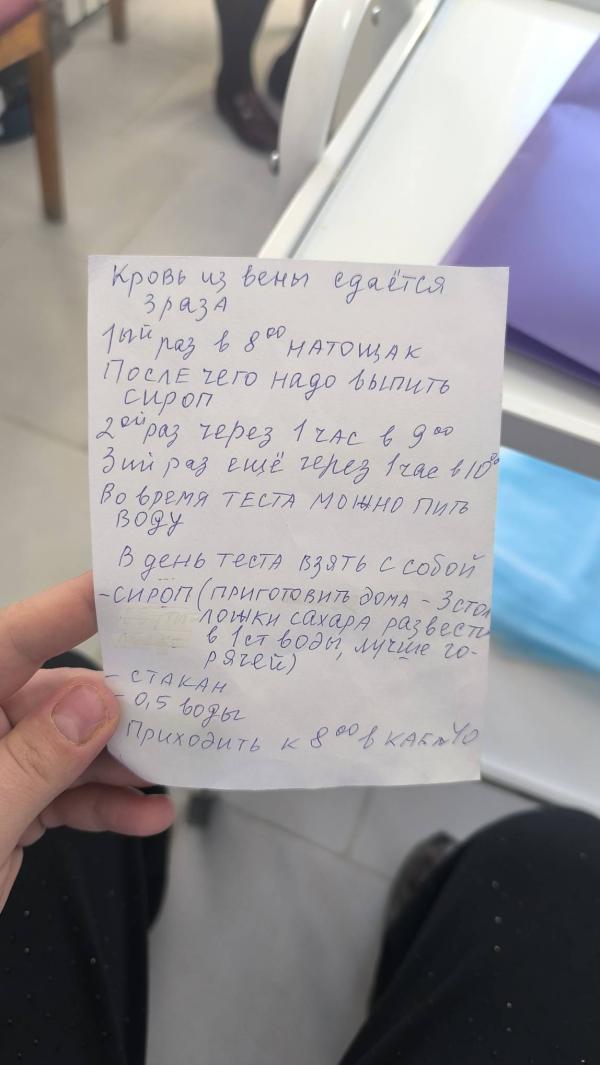 Кровь из вены сдаётся
3 раза
1ый раз в 8⁰⁰ натощак
После чего надо выпить
сироп
2ой раз через 1 час в 9⁰⁰
3ий раз ещё через 1 час в 10⁰⁰
Во время теста можно пить
воду
В день теста взять с собой
- сироп (приготовить дома - 3 стол
ложки сахара развести
в 1 ст воды, лучше го-
рячей)
- стакан
- 0,5 воды
Приходить к 8⁰⁰ в каб